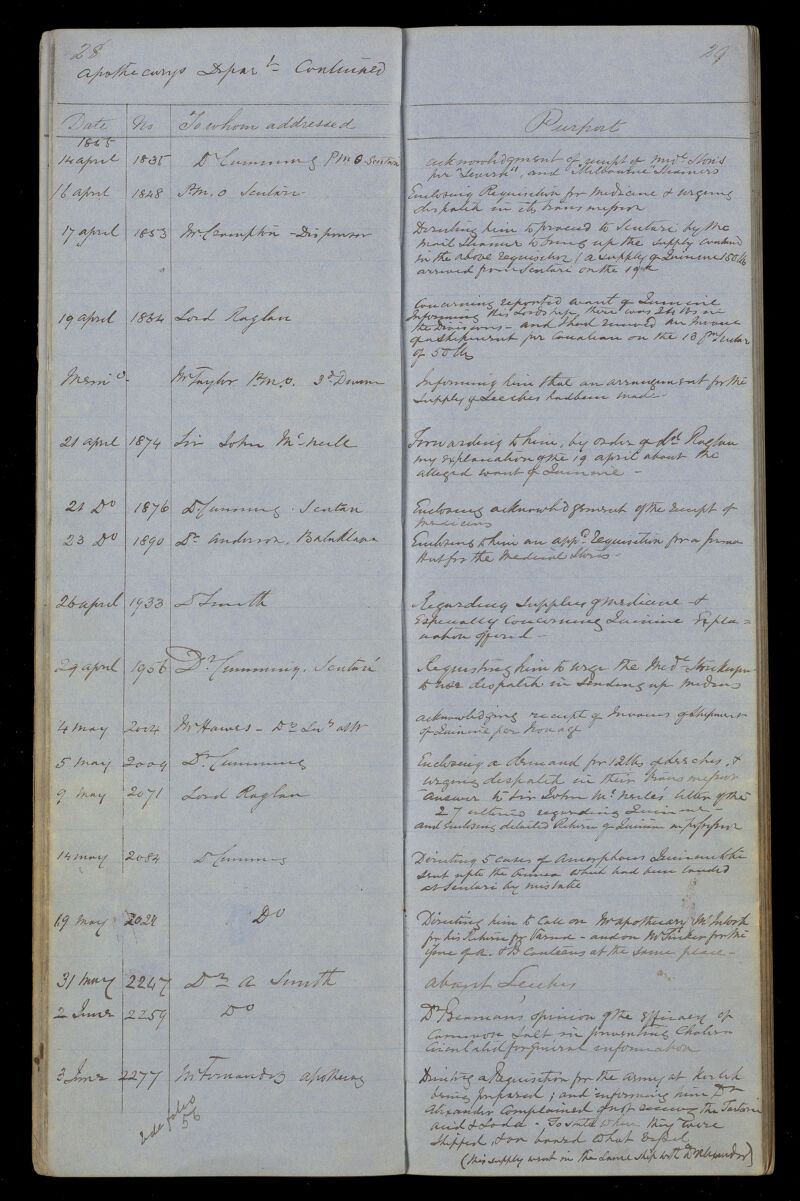 28
Apothecarys Depart Continued
29
Date No To whom addressed
Purport
1855
14 April 1835 Dr Cumming P.M.O. Scutari
Acknowledgment of receipt of Med. Stores
per and "Melbourne" Steamers
16 April 1848 P.M.O Scutari
Enclosing Requisition for Medicine & urging
dispatch in its transmission
17 April 1853 Mr Crompton - Dispenser
Directing him to proceed to Scutari by the
Mail Steamer to bring up the supply contained
in the above requisition (a supply of Quinine 150 lbs
arrived from Scutari on the 19th
19 April 1834 Lord Raglan
Concerning reported want of Quinine
Informing His Lordship there was 24 lbs in
the Divisions - and I had received an Invoice
of a shipment per on the 13 from Scutari
of 50 lbs
Memo. Mr Taylor P.M.O. 3d Division
Informing him that an arrangement for the
supply of Leeches had been made
21 April 1874 Sir John McNeill
Forwarding to him, by order of Ld. Raglan
my explanation of the 19 April about the
alleged want of Quinine -
21 Do 1876 Dr Cumming. Scutari
Enclosing acknowledgement of the receipt of
medicines
23 Do 1890 Dr Anderson, Balaklava
Enclosing to him an appd. requisition for a
hut for the Medical Stores -
26 April 1933 Dr Smith
Regarding supplies of medicine &
especially concerning Quinine Expla=
nation offered -
29 April 1956 Dr Cumming. Scutari
Requesting him to urge the Medl. Storekeeper
to use dispatch in sending up medicines
4 May 2004 Mr Hawes -
Acknowledging receipt of Invoices of shipment
of Quinine per
5 May 2009 Dr Cumming
Enclosing a demand for 12 lbs of Leeches, &
urging dispatch in their transmission
9 May 2071 Lord Raglan
Answer to Sir John McNeill's letter of the
27 regarding Quinine -
and Enclosing detailed Return of Quinine
14 May 2084 Dr Cumming
Directing 5 cases of Amorphous Quinine to be
sent up to the Crimea which had been landed
at Scutari by mistake
19 May 2024 Do
Directing him to call on Mr Apothecary McIntosh
for his Return for Varna - and on Mr for the
of A. & B Canteens at the same place -
31 May 2247 Dr A Smith
About Leeches
2 June 2259 Do
Dr opinion of the efficacy of
Common Salt in preventing Cholera
Circulated for general information
3 June 2277 Mr Fernandez Apothecary
Directing a Requisition for the Army at Kertch
being prepared; and informing him Dr
Alexander Complained of not receiving the Tartaric
acid & Soda - To state when they were
shipped, & on board what vessel
(this supply went in the same ship with Dr Alexander)
Vide folio
56